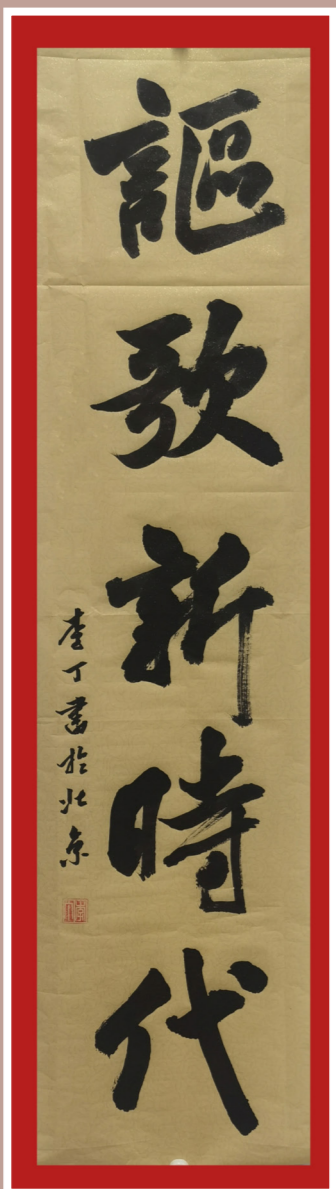 謳歌新時代
李丁書於北京